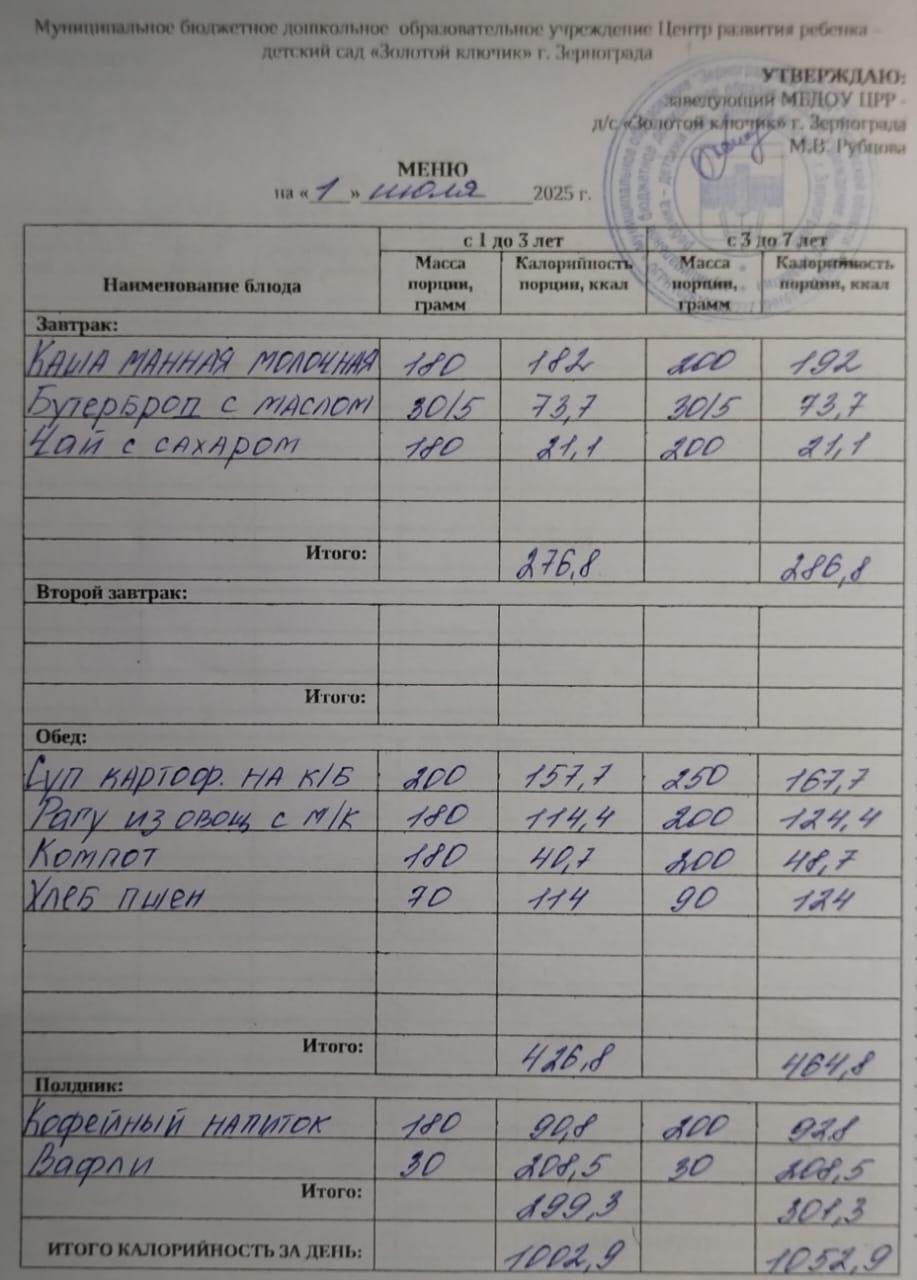 Муниципальное бюджетное дошкольное образовательное учреждение Центр развития ребенка –
детский сад «Золотой ключик» г. Зернограда
УТВЕРЖДАЮ:
заведующий МБДОУ ЦРР -
д/с «Золотой ключик» г. Зернограда
М.В. Рубцова
МЕНЮ
на « 1 » июля 2025 г.
Наименование блюда с 1 до 3 лет с 3 до 7 лет
Масса порции, грамм Калорийность порции, ккал Масса порции, грамм Калорийность порции, ккал
Завтрак:
Каша манная молочная 180 182 200 192
Бутерброд с маслом 30/5 73,7 30/5 73,7
Чай с сахаром 180 21,1 200 21,1
Итого: 276,8 286,8
Второй завтрак:
Итого:
Обед:
Суп картоф. на к/б 200 157,7 250 167,7
Рагу из овощ с м/к 180 114,4 200 124,4
Компот 180 40,7 200 48,7
Хлеб пшен 70 114 90 124
Итого: 426,8 464,8
Полдник:
Кофейный напиток 180 90,8 200 92,8
Вафли 30 208,5 30 208,5
Итого: 299,3 301,3
ИТОГО КАЛОРИЙНОСТЬ ЗА ДЕНЬ: 1002,9 1052,9